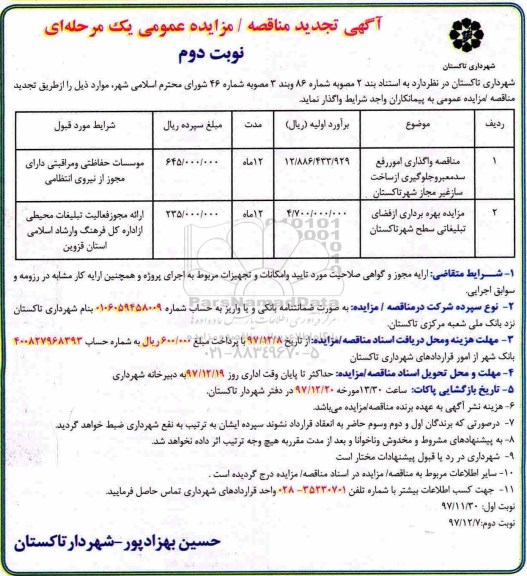 آگهی تجدید مناقصه / مزایده عمومی یک مرحله‌ای
نوبت دوم
شهرداری تاکستان
شهرداری تاکستان در نظردارد به استناد بند ۲ مصوبه شماره ۸۶ وبند ۳ مصوبه شماره ۴۶ شورای محترم اسلامی شهر، موارد ذیل را ازطریق تجدید
مناقصه /مزایده عمومی به پیمانکاران واجد شرایط واگذار نماید.
ردیف موضوع برآورد اولیه (ریال) مدت مبلغ سپرده ریال شرایط مورد قبول
۱ مناقصه واگذاری اموررفع سدمعبروجلوگیری ازساخت سازغیر مجاز شهرتاکستان ۱۲/۸۸۶/۴۳۳/۹۲۹ ۱۲ماه ۶۴۵/۰۰۰/۰۰۰ موسسات حفاظتی ومراقبتی دارای مجوز از نیروی انتظامی
۲ مزایده بهره برداری ازفضای تبلیغاتی سطح شهرتاکستان ۴/۷۰۰/۰۰۰/۰۰۰ ۱۲ماه ۲۳۵/۰۰۰/۰۰۰ ارائه مجوزفعالیت تبلیغات محیطی ازاداره کل فرهنگ وارشاد اسلامی استان قزوین
۱- شــرایط متقاضی: ارایه مجوز و گواهی صلاحیت مورد تایید وامکانات و تجهیزات مربوط به اجرای پروژه و همچنین ارایه کار مشابه در رزومه و
سوابق اجرایی.
۲- نوع سپرده شرکت درمناقصه / مزایده: به صورت ضمانتنامه بانکی و یا واریز به حساب شماره ۰۱۰۶۰۵۹۴۵۸۰۰۹ بنام شهرداری تاکستان
نزد بانک ملی شعبه مرکزی تاکستان.
۳- مهلت هزینه ومحل دریافت اسناد مناقصه/مزایده: از تاریخ ۹۷/۱۲/۸ با پرداخت مبلغ ۶۰۰/۰۰۰ ریال به شماره حساب ۴۰۰۸۲۷۹۶۸۳۹۳
بانک شهر از امور قراردادهای شهرداری تاکستان
۴- مهلت و محل تحویل اسناد مناقصه/مزایده: حداکثر تا پایان وقت اداری روز ۹۷/۱۲/۱۹به دبیرخانه شهرداری
۵- تاریخ بازگشایی پاکات: ساعت ۱۳/۳۰مورخه ۹۷/۱۲/۲۰ در دفتر شهردار تاکستان.
۶- هزینه نشر آگهی به عهده برنده مناقصه/مزایده می‌باشد.
۷- درصورتی که برندگان اول و دوم وسوم حاضر به انعقاد قرارداد نشوند سپرده ایشان به ترتیب به نفع شهرداری ضبط خواهد گردید.
۸- به پیشنهادهای مشروط و مخدوش وناخوانا و بعد از مدت مقرربه هیچ وجه ترتیب اثر داده نخواهد شد.
۹- شهرداری در رد یا قبول پیشنهادات مختار است
۱۰- سایر اطلاعات مربوط به مناقصه/ مزایده در اسناد مناقصه/ مزایده درج گردیده است .
۱۱- جهت کسب اطلاعات بیشتر با شماره تلفن ۳۵۲۳۰۷۰۱- ۰۲۸ واحد قراردادهای شهرداری تماس حاصل فرمایید.
نوبت اول: ۹۷/۱۱/۳۰
نوبت دوم:۹۷/۱۲/۷
حسین بهزادپور-شهردارتاکستان
ParsNamadData
۰۲۱-۸۸۳۴۹۶۷۰-۵